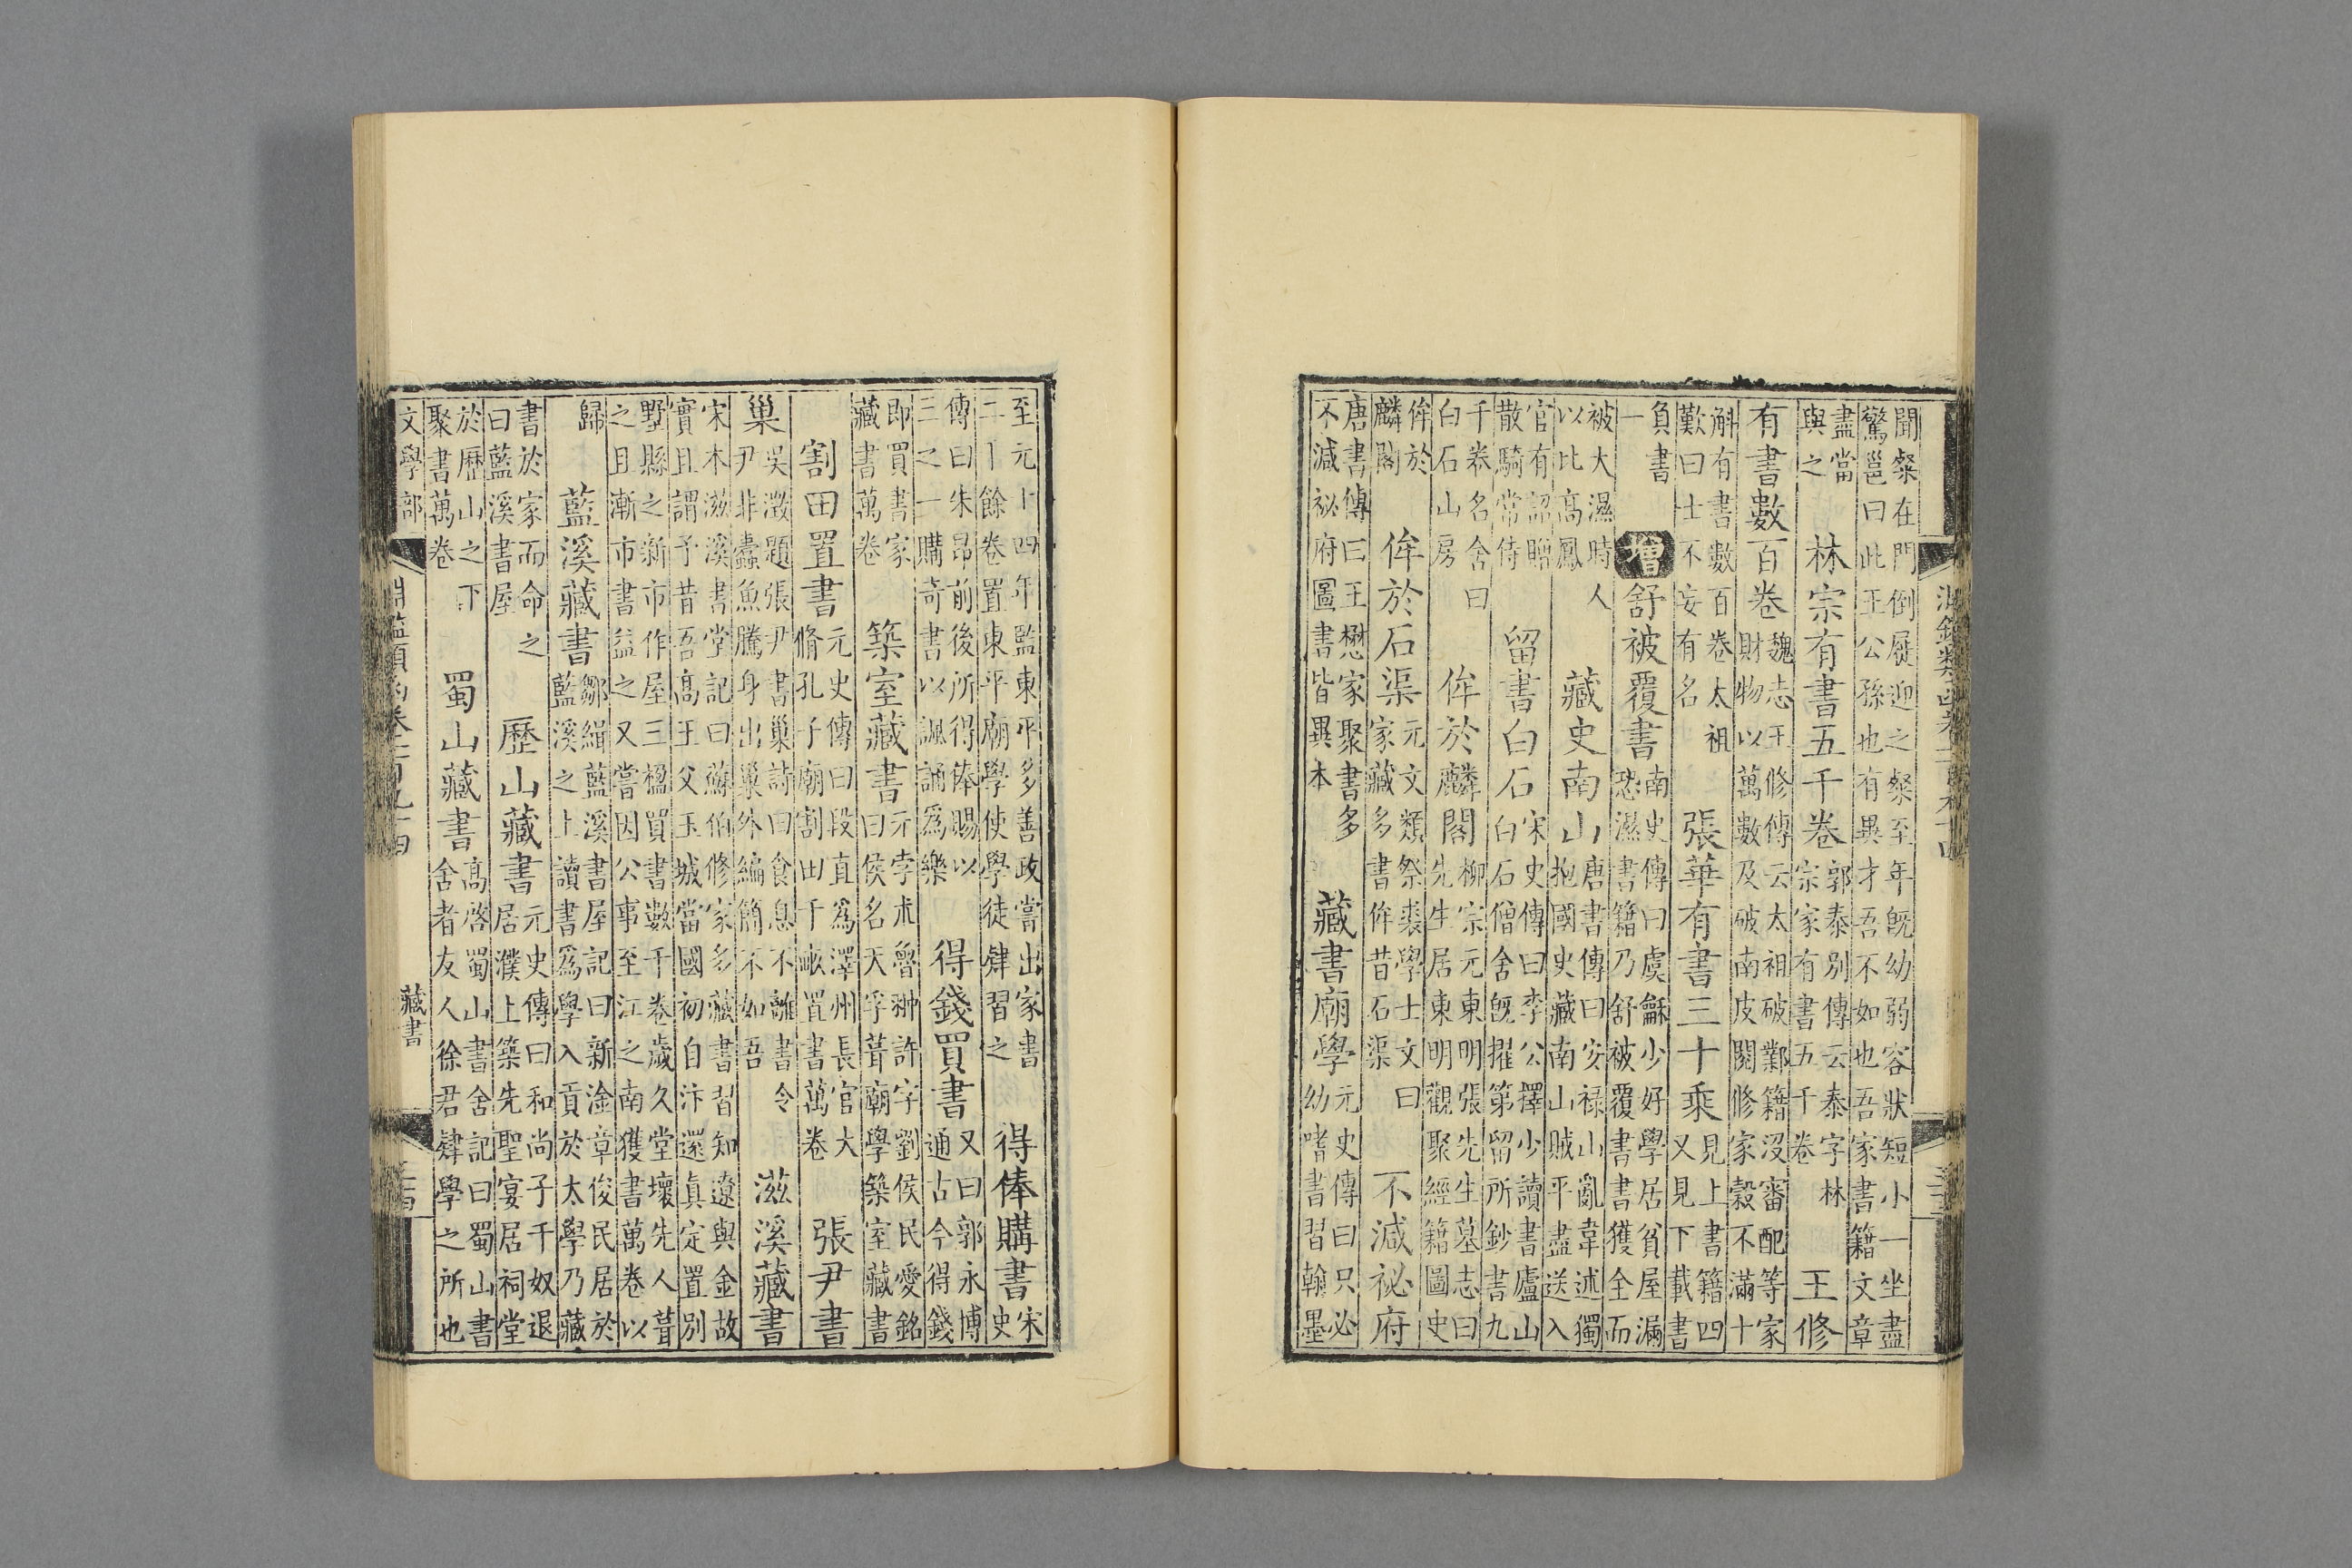 聞粲在門倒屣迎之粲至年旣幼弱容狀短小一坐盡
驚邕曰此王公孫也有異才吾不如也吾家書籍文章
盡當
與之
林宗有書五千卷
郭泰別傳云泰字林
宗家有書五千卷
王修
有書數百卷
魏志王修傳云太祖破鄴籍沒審配等家
財物以萬數及破南皮閱修家穀不滿十
斛有書數百卷太祖
歎曰士不妄有名
張華有書三十乘
見上書籍四
又見下載書
負書
一
增
舒被覆書
南史傳曰虞龢少好學居貧屋漏
恐濕書籍乃舒被覆書書獲全而
被大濕時人
以比高鳳
藏史南山
唐書傳曰安祿山亂韋述獨
抱國史藏南山賊平盡送入
官有詔贈
散騎常侍
留書白石
宋史傳曰李公擇少讀書廬山
白石僧舍旣擢第留所鈔書九
千卷名舍曰
白石山房
侔於麟閣
柳宗元東明張先生墓志曰
先生居東明觀聚經籍圖史
侔於
麟閣
侔於石渠
元文類祭袁學士文曰
家藏多書侔昔石渠
不減祕府
唐書傳曰王懋家聚書多
不減祕府圖書皆異本
藏書廟學
元史傳曰只必
幼嗜書習翰墨
至元十四年監東平多善政嘗出家書
二十餘卷置東平廟學使學徒肄習之
得俸購書
宋
史
傳曰朱昂前後所得俸賜以
三之一購奇書以諷誦爲樂
得錢買書
又曰郭永博
通古今得錢
即買書家
藏書萬卷
築室藏書
元孛朮魯翀許字劉侯民愛銘
曰侯名天孚葺廟學築室藏書
割田置書
元史傳曰段直爲澤州長官大
脩孔子廟割田千畝置書萬卷
張尹書
巢
吳澂題張尹書巢詩曰食息不離書令
尹非蠹魚騰身出巢外編簡不如吾
滋溪藏書
宋本滋溪書堂記曰蘇伯修家多藏書習知遼與金故
實且謂予昔吾高王父玉城當國初自汴還真定置別
墅縣之新市作屋三楹買書數千卷歲久堂壞先人葺
之且漸市書益之又嘗因公事至江之南獲書萬卷以
歸
藍溪藏書
鄒緝藍溪書屋記曰新淦章俊民居於
藍溪之上讀書爲學入貢於太學乃藏
書於家而命之
曰藍溪書屋
歷山藏書
元史傳曰和尚子千奴退
居濮上築先聖宴居祠堂
於歷山之下
聚書萬卷
蜀山藏書
高啓蜀山書舍記曰蜀山書
舍者友人徐君肄學之所也
文學部
藏書